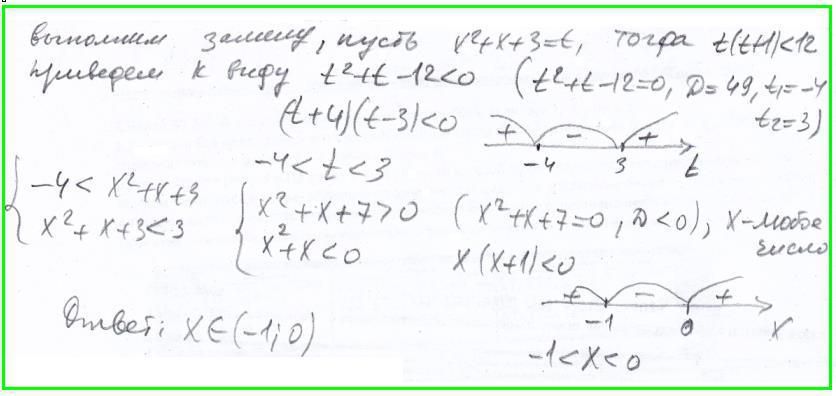 выполним замену, пусть x²+x+3=t, тогда t(t+1)<12
приведем к виду t²+t-12<0 (t²+t-12=0, D=49, t₁=-4
t₂=3)
(t+4)(t-3)<0
+ - +
-4 3 t
-4<t<3
{ -4< x²+x+3
x²+x+3<3
{ x²+x+7>0 (x²+x+7=0, D<0), x-любое
число
x²+x<0
x(x+1)<0
+ - +
-1 0 x
-1<x<0
Ответ: x∈(-1;0)